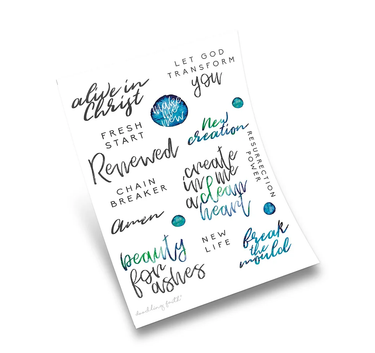 alive in
Christ
LET GOD
TRANSFORM
you
make
me
new
FRESH
START
New
creation
Renewed
RESURRECTION
POWER
create
in me
a clean
heart
CHAIN
BREAKER
Amen
beauty
for
ashes
NEW
LIFE
break
the
mould